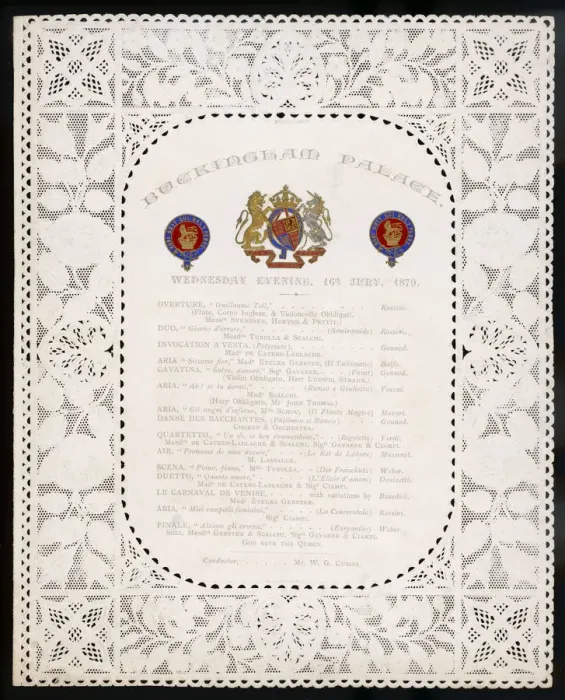 BUCKINGHAM PALACE.
WEDNESDAY EVENING, 16th JULY, 1879.
OVERTURE, "Guillaume Tell," . . . . . . . Rossini.
(Flute, Corno Inglese, & Violoncello Obbligati.
Messrs SVENDSEN, HORTON & PETTIT.)
DUO, "Giorno d'orrore," . . . (Semiramide) Rossini.
Mesdmes TUROLLA & SCALCHI.
INVOCATION A VESTA, (Polyeucte), . . . . . Gounod.
Made DE CATERS-LABLACHE.
ARIA "Placida fior," Made ETELKA GERSTER, (Il Talismano) Balfe.
CAVATINA, "Salve, dimora," Sigr GAYARRE, . (Faust) Gounod.
(Violin Obbligato, Herr LUDWIG STRAUS.)
ARIA, "Ah! se tu dormi," . . (Romeo e Giulietta) Vaccai.
Made SCALCHI.
(Harp Obbligato, Mr JOHN THOMAS.)
ARIA, "Gli angui d'inferno, (Il Flauto Magico) Mozart.
DANSE DES BACCHANTES, (Philémon et Baucis) . . Gounod.
CHORUS & ORCHESTRA.
QUARTETTO, "Un dì, se ben rammentomi," . (Rigoletto) Verdi.
Mesdmes DE CATERS-LABLACHE & SCALCHI, Sigri GAYARRE & CIAMPI.
AIR, "Promesse de mon avenir," . (Le Roi de Lahore) Massenet.
M. LASSALLE.
SCENA, "Piano, piano," Mlle TUROLLA, . (Der Freischütz) Weber.
DUETTO, "Quanto amore," . . . (L'Elisir d'amore) Donizetti.
Made DE CATERS-LABLACHE & Sigr CIAMPI.
LE CARNAVAL DE VENISE, . . . with variations by Benedict.
Made ETELKA GERSTER.
ARIA, "Miei rampolli feminini," . . (La Cenerentola) Rossini.
Sigr CIAMPI.
FINALE, . . . (Euryanthe) Weber.
SOLI, Mesdmes GERSTER & SCALCHI, Sigri GAYARRE & CIAMPI.
GOD SAVE THE QUEEN.
Conductor, . . . . . . Mr. W. G. CUSINS.